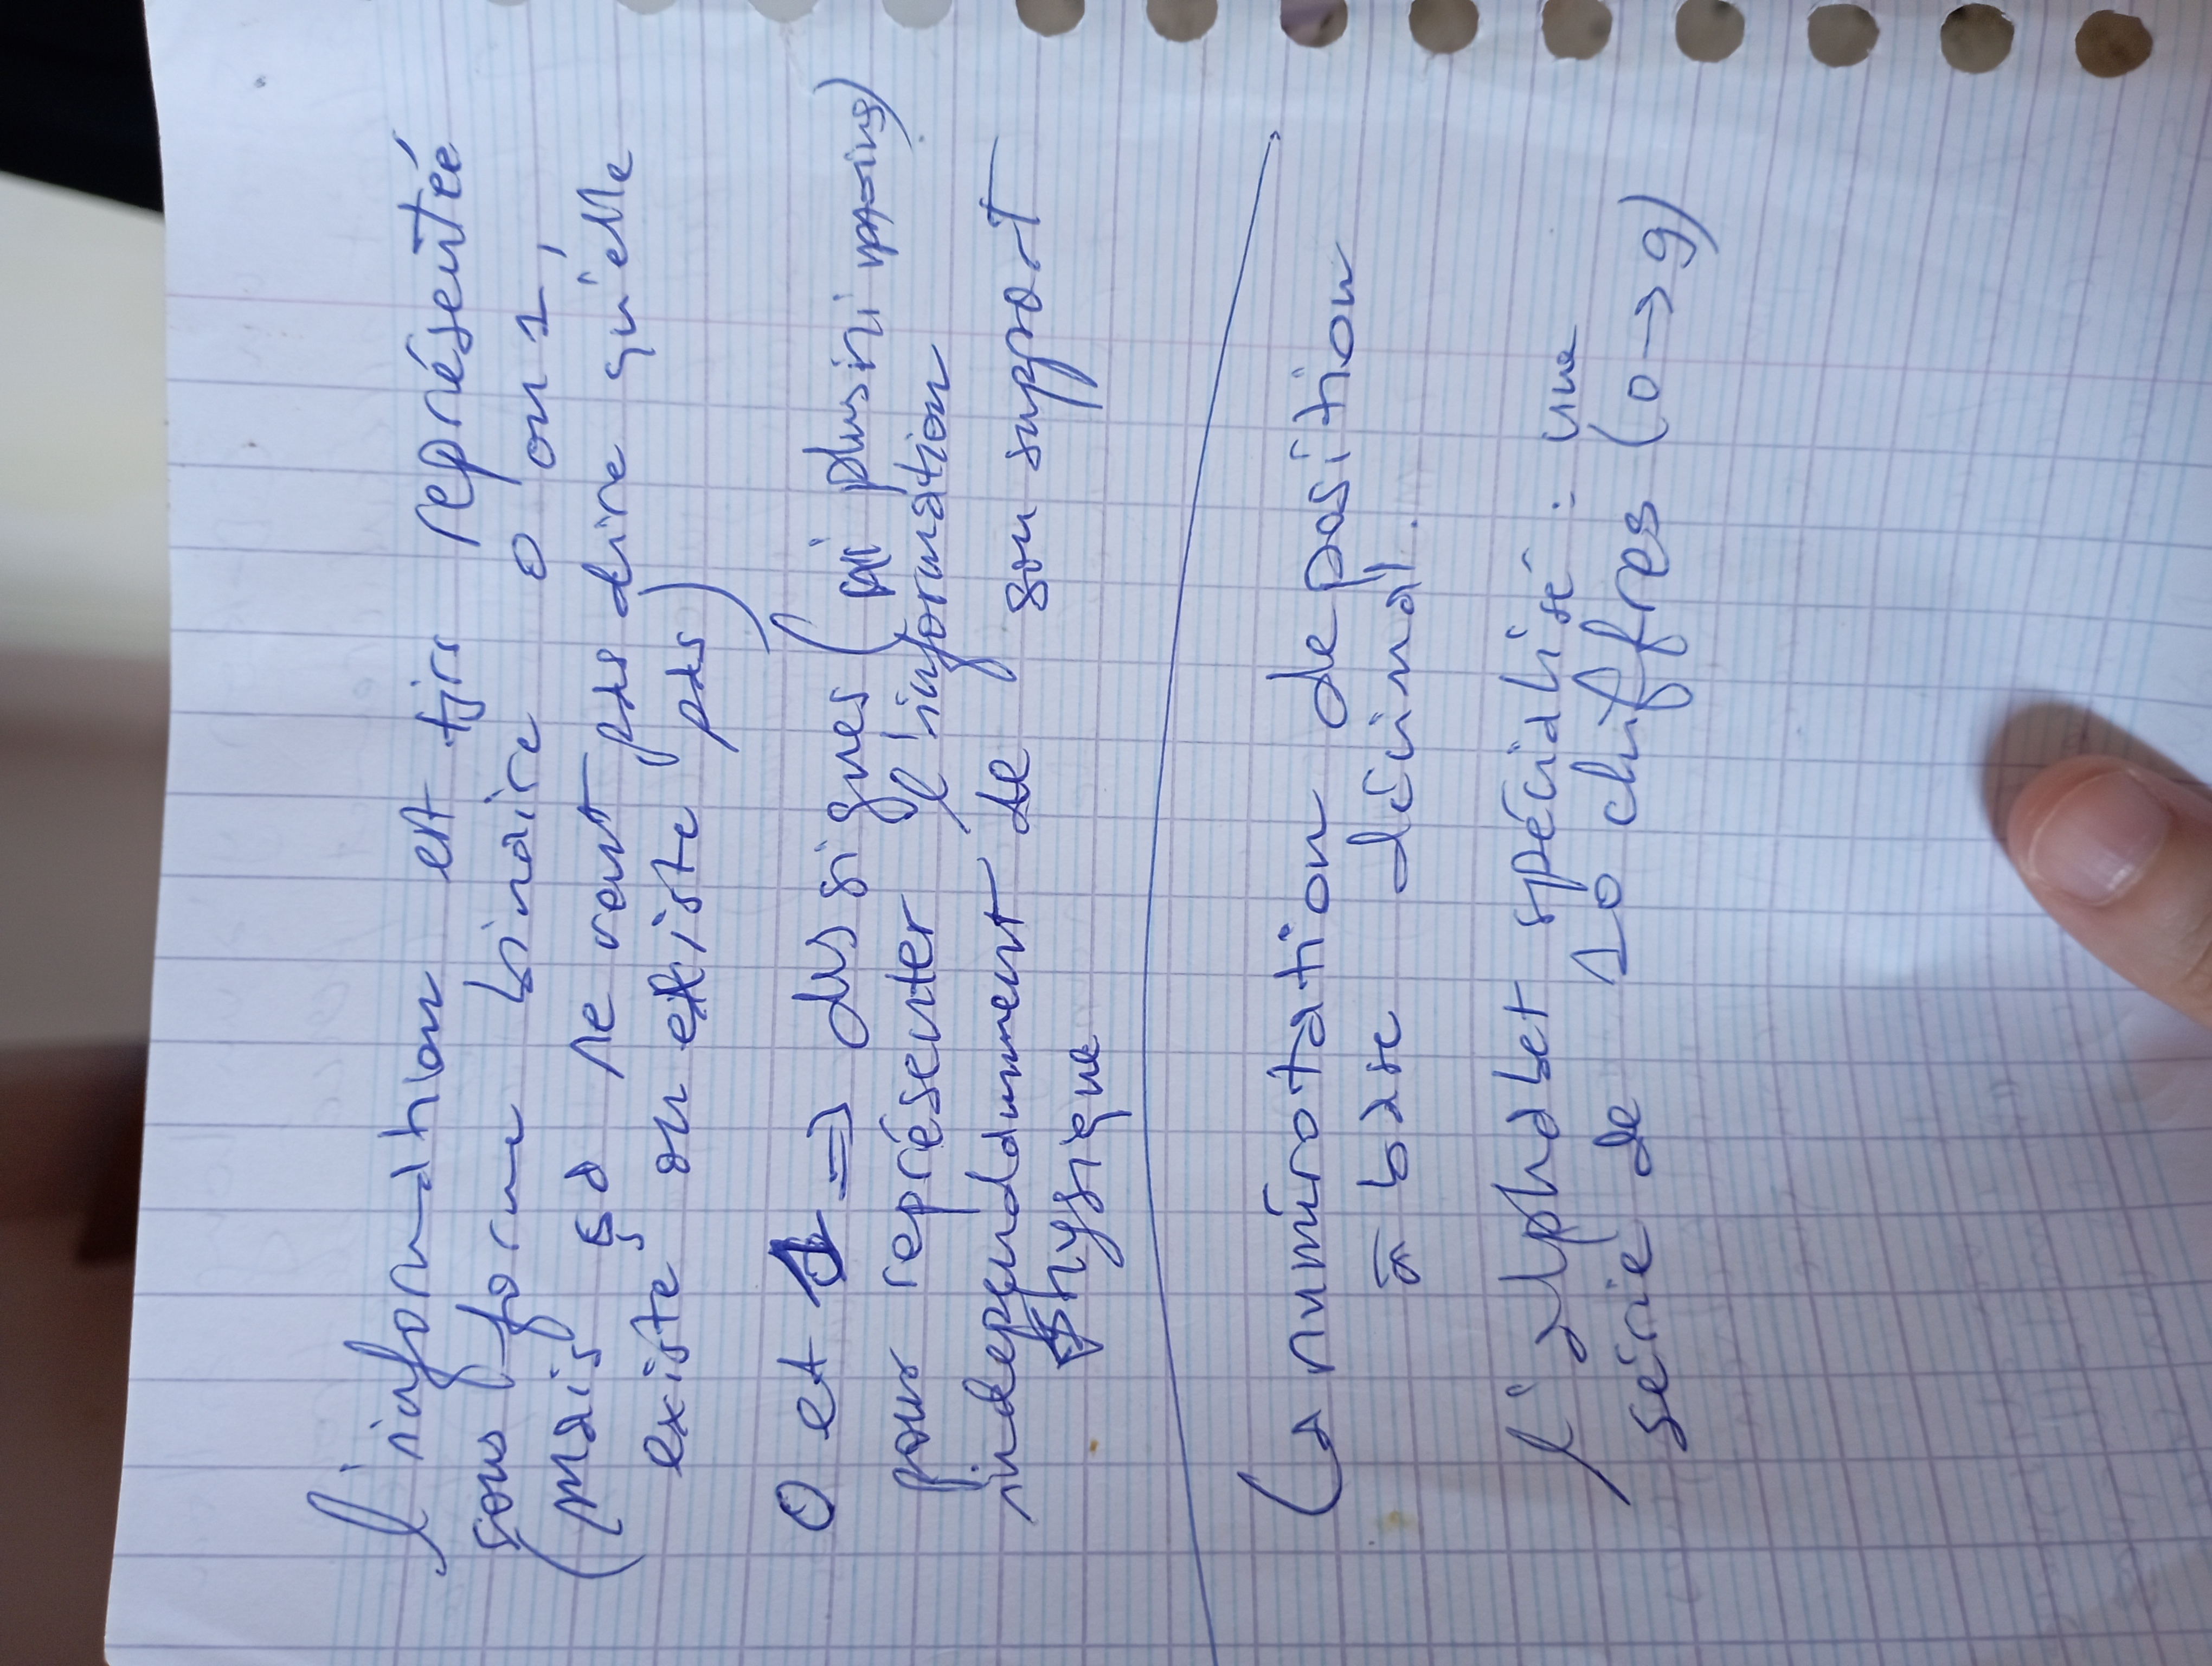 l'information est tjrs représentée
sous forme binaire 0 ou 1,
(mais ça ne veut pas dire qu'elle
existe ou existe pas)
0 et 1 => des signes (ni plus ni moins)
pour représenter l'information
independamment de son support
Physique
↳ numérotation de position
à base décimal.
l'alphabet spécialisé : une
série de 10 chiffres (0 → 9)